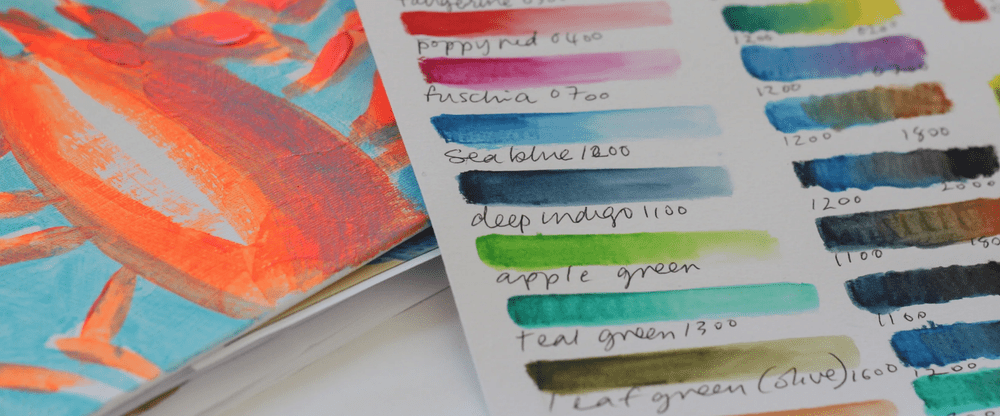 tangerine 0300
poppy red 0400
fuschia 0700
sea blue 1200
deep indigo 1100
apple green
teal green 1300
leaf green (olive) 1600
1200
1200
1200 1800
1200 2000
1100
1100
1200